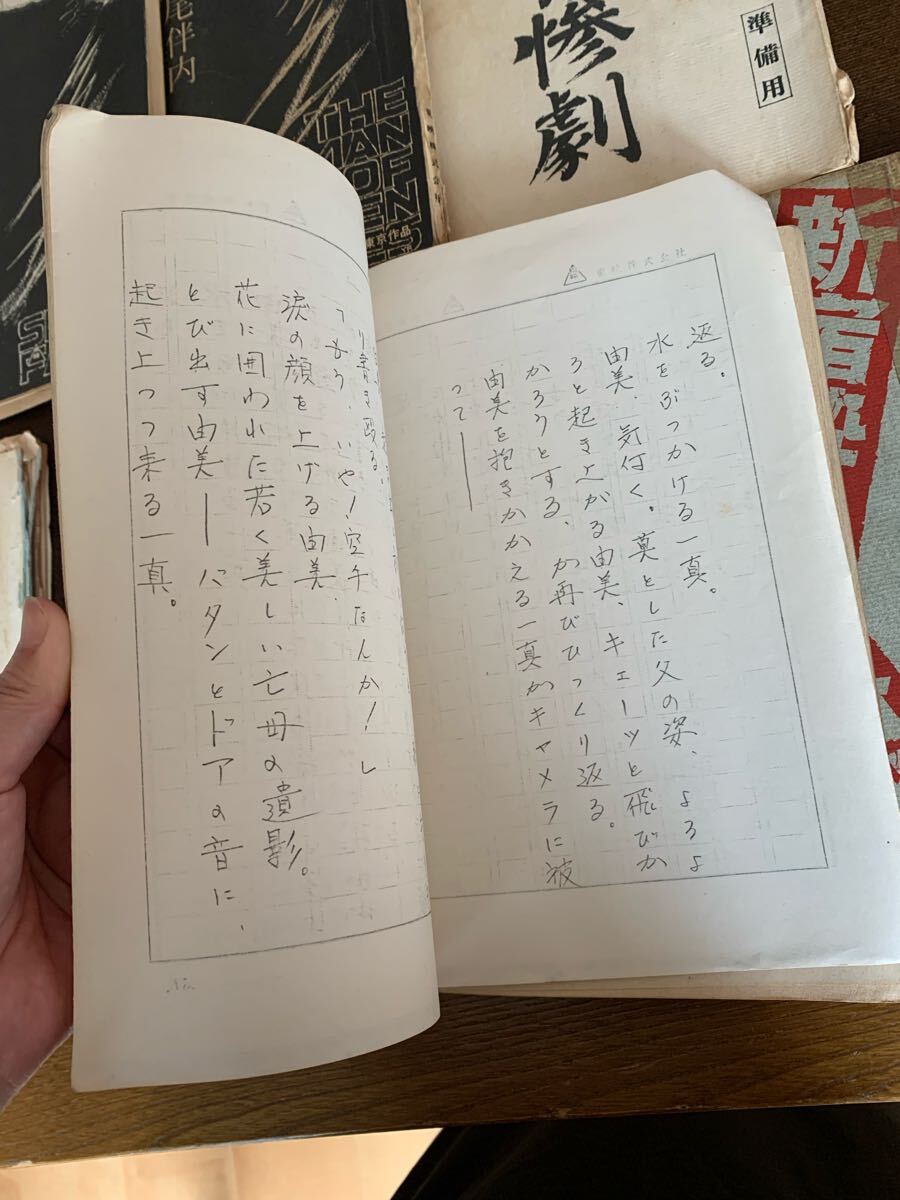 尾伴内
THE
MAN OF
東京作品
惨劇
準備用
新宿
東映株式会社
返る。
水をぶつかける一真。
由美、気付く。真とした父の姿、よろよ
ろと起き上がる由美、キエーッと飛びか
かろうとする、か再びひっくり返る。
由美を抱きかかえる一真がキャメラに被
って──
り書き殴る。
「もう、いや!空手なんか!」
涙の顔を上げる由美、
花に囲われた若く美しい亡母の遺影。
とび出す由美──バタンとドアの音に、
起き上って来る一真。